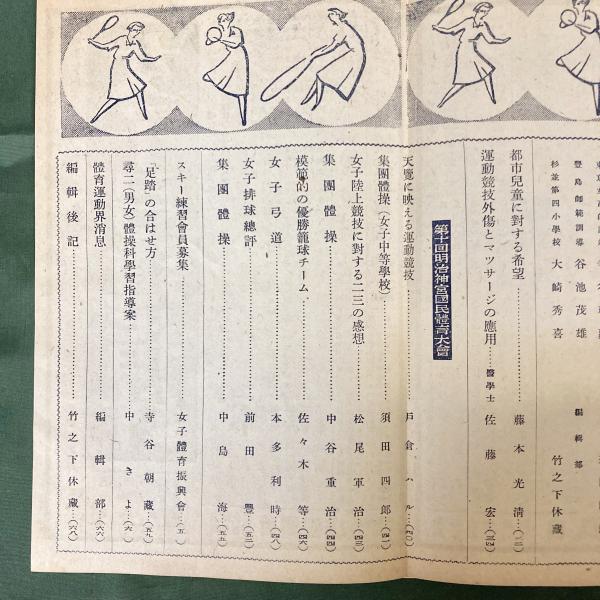 豊島師範訓導 谷池茂雄
杉並第四小學校 大崎秀喜
編輯部
竹之下休藏
都市兒童に對する希望 藤本光淸…(三)
運動競技外傷とマツサージの應用 醫學士 佐藤宏…(三四)
第十回明治神宮國民體育大會
天鷹に映える運動競技 戸倉ハル…(四〇)
集團體操(女子中等學校) 須田四郎…(四一)
女子陸上競技に對する二三の感想 松尾軍治…(四三)
集團體操 中谷重治…(四四)
模範的の優勝籠球チーム 佐々木等…(四六)
女子弓道 本多利時…(四八)
女子排球總評 前田豊…(五二)
集團體操 中島海…(五五)
スキー練習會員募集 女子體育振興會…(五)
「足踏」の合はせ方 寺谷朝藏…(五九)
尋二(男女)體操科學習指導案 中きよ…(六)
體育運動界消息 編輯部…(六六)
編輯後記 竹之下休藏…(六八)